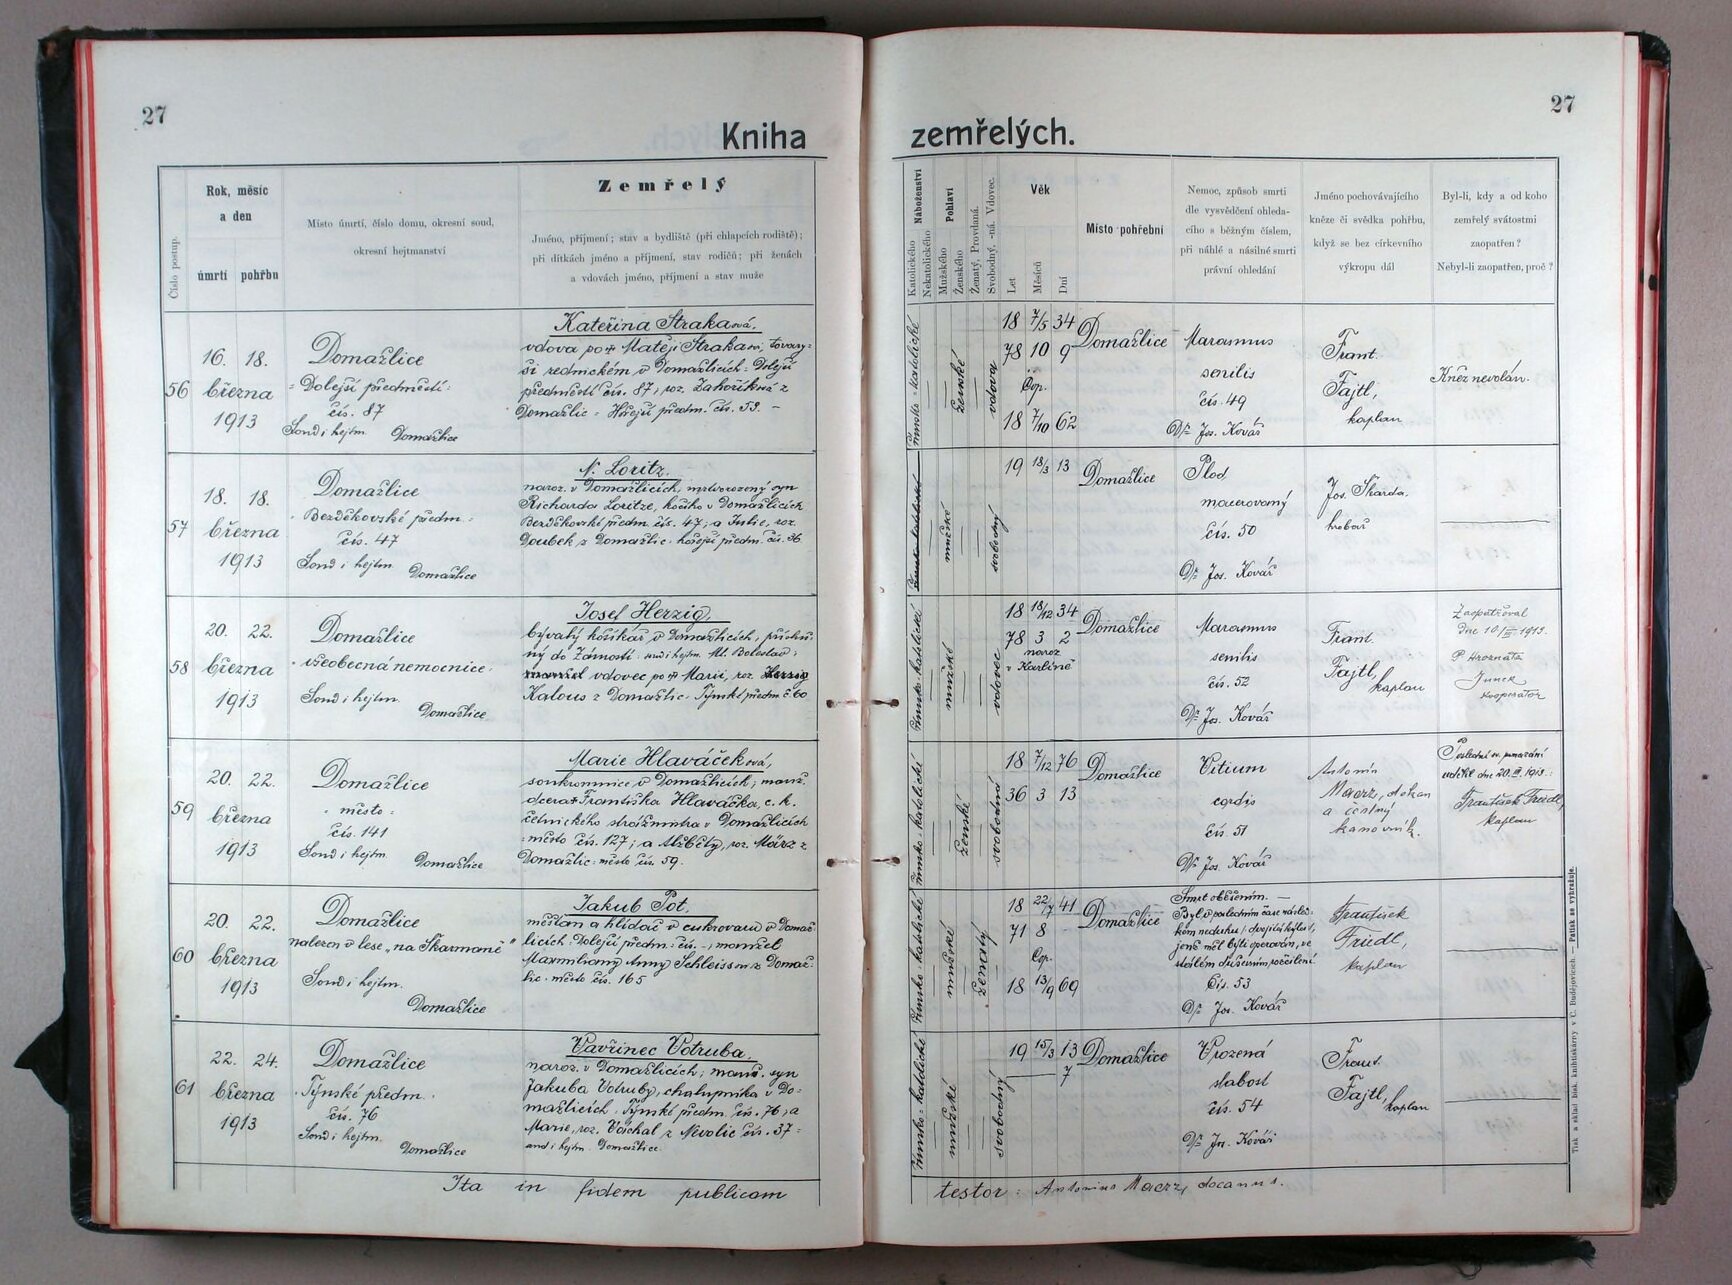 27
27
Kniha zemřelých.
Číslo postup.
Rok, měsíc
a den
úmrtí pohřbu
Místo úmrtí, číslo domu, okresní soud,
okresní hejtmanství
Zemřelý
Jméno, příjmení; stav a bydliště (při chlapcích rodiště);
při dítkách jméno a příjmení, stav rodičů; při ženách
a vdovách jméno, příjmení a stav muže
Katolického
Nekatolického
Náboženství
Mužského
Ženského
Pohlaví
Ženatý, Provdaná.
Svobodný, -ná. Vdovec.
Věk
Let
Měsíců
Dní
Místo pohřební
Nemoc, způsob smrti
dle vysvědčení ohleda-
cího s běžným číslem,
při náhlé a násilné smrti
právní ohledání
Jméno pochovávajícího
kněze či svědka pohřbu,
když se bez církevního
výkropu dál
Byl-li, kdy a od koho
zemřelý svátostmi
zaopatřen?
Nebyl-li zaopatřen, proč?
56
16. 18.
března
1913
Domažlice
Dolejší předměstí
čís. 87
Soud i hejtm.
Domažlice
Kateřina Straková,
vdova po Matěji Strakovi, tovary-
ši
v Domažlicích: Dolejší
předměstí čís. 87, roz. Záhoříková z
Domažlic: Hořejší předm. čís. 53. –
římsko-katolické
ženské
vdova
18 7/5 34
78 10 9
Cop.
18 7/10 62
Domažlice
Marasmus
senilis
čís. 49
Dr. Jos. Kovář
Frant.
Fajtl,
kaplan
Kněz nevolán.
57
18. 18.
března
1913
Domažlice
Bezděkovské předm.
čís. 47
Soud i hejtm.
Domažlice
N. Loritz.
naroz. v Domažlicích, mrtvorozený syn
Richarda Loritze, kočího v Domažlicích
Bezděkovské předm. čís. 47; a Julie, roz.
Doubek z Domažlic: hořejší předm. čís. 36
mužské
svobodný
19 18/3 13
Domažlice
Plod
macerovaný
čís. 50
Dr. Jos. Kovář
Jos. Škarda,
hrobař
58
20. 22.
března
1913
Domažlice
všeobecná nemocnice
Soud i hejtm.
Domažlice
Josef Herzig,
bývalý košíkář v Domažlicích, přísluš-
ný do Zámostí: soud i hejtm. Ml. Boleslav;
vdovec po Marii, roz. Herzig
Kalous z Domažlic: Týnské předm č. 60
římsko-katolické
mužské
vdovec
18 18/12 34
78 3 2
naroz
v Karlíně
Domažlice
Marasmus
senilis
čís. 52
Dr. Jos. Kovář
Frant.
Fajtl,
kaplan
Zaopatřoval
dne 10/III 1913.
P. Hroznata
Junek
kooperator
59
20. 22.
března
1913
Domažlice
město
čís. 141
Soud i hejtm.
Domažlice
Marie Hlaváčková,
soukromnice v Domažlicích; manž.
dcera Františka Hlaváčka, c. k.
četnického strážmistra v Domažlicích
město čís. 127; a Alžběty, roz. März z
Domažlic: město čís. 59.
římsko-katolické
ženské
svobodná
18 7/12 76
36 3 13
Domažlice
Vitium
cordis
čís. 51
Dr. Jos. Kovář
Antonín
Maerz, děkan
a čestný
kanovník.
Poslední sv. pomazání
udělil dne 20. III. 1913:
František Friedl,
kaplan
60
20. 22.
března
1913
Domažlice
nalezen v lese „na Škarmaně"
Soud i hejtm.
Domažlice
Jakub Pot,
měšťan a hlídač v cukrovaru v Domaž-
licích: Dolejší předm. čís. –, manžel
Anny Schleiss z Domaž-
lic: město čís. 165
římsko-katolické
mužské
ženatý
18 22/7 41
71 8
Cop.
18 13/9 69
Domažlice
Smrt oběšením. –
Byl v posledním čase
jenž měl býti operován, ve
stálém duševním rozčilení
Čís. 53
Dr. Jos. Kovář
František
Friedl,
kaplan
61
22. 24.
března
1913
Domažlice
Týnské předm.
čís. 76
Soud i hejtm.
Domažlice
Vavřinec Votruba,
naroz. v Domažlicích; manž. syn
Jakuba Votruby, chalupníka v Do-
mažlicích: Týnské předm. čís. 76, a
Marie, roz. Váchal z Nevolic čís. 37
soud i hejtm. Domažlice.
římsko-katolické
mužské
svobodný
19 15/3 13
7
Domažlice
Vrozená
slabost
čís. 54
Dr. Jos. Kovář
Frant.
Fajtl,
kaplan
Ita in fidem publicam testor: Antonius Maerz, decanus.
Tisk a sklad bisk. knihtiskárny v Č. Budějovicích. — Patisk se vyhražuje.